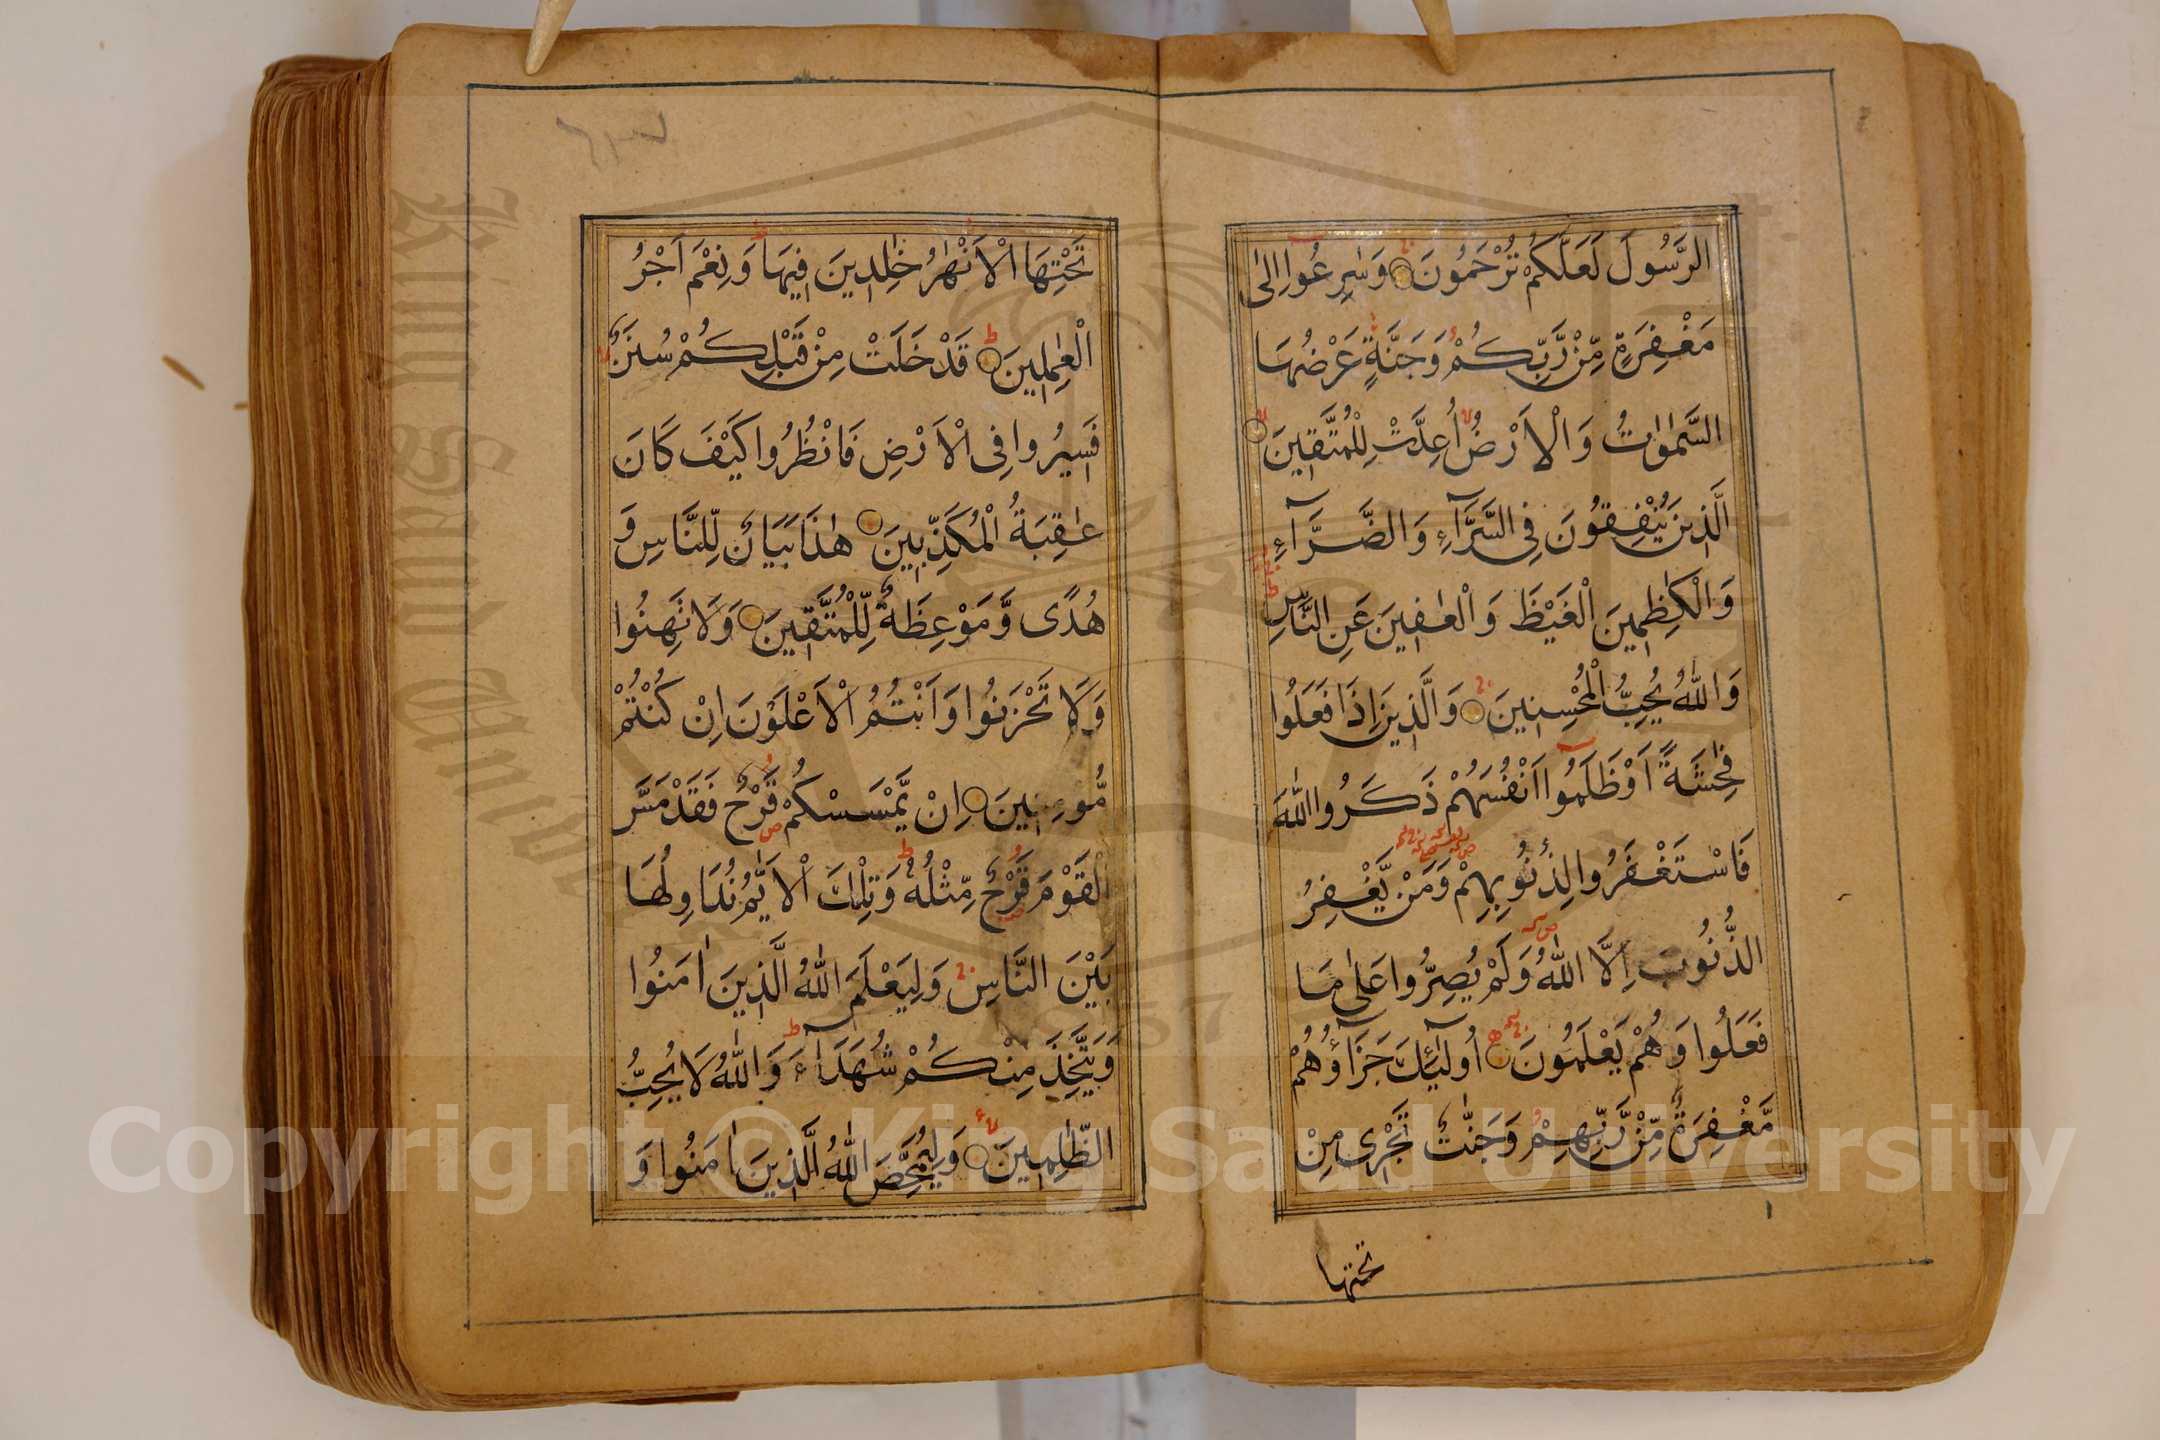 الرَّسُولَ لَعَلَّكُمْ تُرْحَمُونَ وَسَارِعُوا اِلٰى
مَغْفِرَةٍ مِّنْ رَّبِّكُمْ وَجَنَّةٍ عَرْضُهَا
السَّمٰوٰتُ وَالْاَرْضُ اُعِدَّتْ لِلْمُتَّقِينَ
الَّذِينَ يُنْفِقُونَ فِى السَّرَّآءِ وَالضَّرَّآءِ
وَالْكٰظِمِينَ الْغَيْظَ وَالْعٰفِينَ عَنِ النَّاسِ
وَاللّٰهُ يُحِبُّ الْمُحْسِنِينَ وَالَّذِينَ اِذَا فَعَلُوا
فٰحِشَةً اَوْ ظَلَمُوا اَنْفُسَهُمْ ذَكَرُوا اللّٰهَ
فَاسْتَغْفَرُوا لِذُنُوبِهِمْ وَمَنْ يَّغْفِرُ
الذُّنُوبَ اِلَّا اللّٰهُ وَلَمْ يُصِرُّوا عَلٰى مَا
فَعَلُوا وَهُمْ يَعْلَمُونَ اُولٰٓئِكَ جَزَآؤُهُمْ
مَّغْفِرَةٌ مِّنْ رَّبِّهِمْ وَجَنّٰتٌ تَجْرِى مِنْ
تحتها
تَحْتِهَا الْاَنْهٰرُ خٰلِدِينَ فِيهَا وَنِعْمَ اَجْرُ
الْعٰمِلِينَ قَدْ خَلَتْ مِنْ قَبْلِكُمْ سُنَنٌ
فَسِيرُوا فِى الْاَرْضِ فَانْظُرُوا كَيْفَ كَانَ
عٰقِبَةُ الْمُكَذِّبِينَ هٰذَا بَيَانٌ لِّلنَّاسِ وَ
هُدًى وَّمَوْعِظَةٌ لِّلْمُتَّقِينَ وَلَا تَهِنُوا
وَلَا تَحْزَنُوا وَاَنْتُمُ الْاَعْلَوْنَ اِنْ كُنْتُمْ
مُّؤْمِنِينَ اِنْ يَّمْسَسْكُمْ قَرْحٌ فَقَدْ مَسَّ
الْقَوْمَ قَرْحٌ مِّثْلُهُ وَتِلْكَ الْاَيَّامُ نُدَاوِلُهَا
بَيْنَ النَّاسِ وَلِيَعْلَمَ اللّٰهُ الَّذِينَ اٰمَنُوا
وَيَتَّخِذَ مِنْكُمْ شُهَدَآءَ وَاللّٰهُ لَا يُحِبُّ
الظّٰلِمِينَ وَلِيُمَحِّصَ اللّٰهُ الَّذِينَ اٰمَنُوا وَ
King Saud University
1957
Copyright © King Saud University